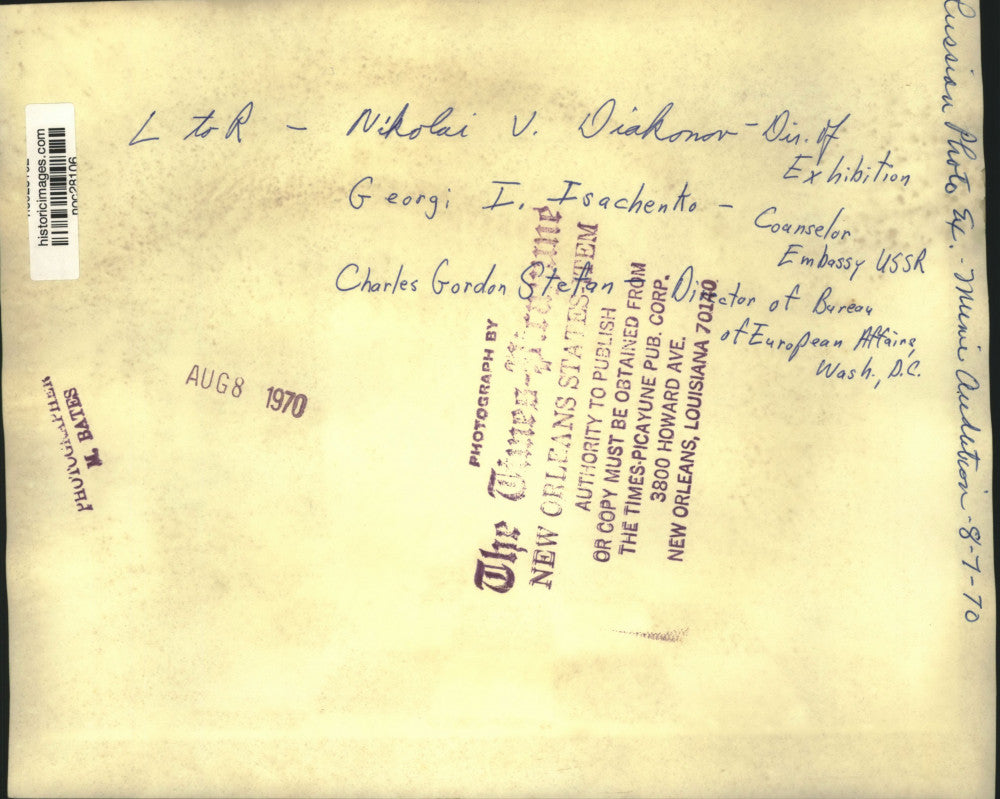 L to R - Nikolai V. Diakonov - Dir. of
Exhibition
Georgi I. Isachenko - Counselor
Embassy USSR
Charles Gordon Stefan - Director of Bureau
of European Affairs,
Wash., D.C.
Russian Photo Ex. - Muni Auditrion - 8-7-70
historicimages.com
AUG 8 1970
PHOTOGRAPHER
M. BATES
PHOTOGRAPH BY
The Times-Picayune
NEW ORLEANS STATES ITEM
AUTHORITY TO PUBLISH
OR COPY MUST BE OBTAINED FROM
THE TIMES-PICAYUNE PUB. CORP.
3800 HOWARD AVE.
NEW ORLEANS, LOUISIANA 70140